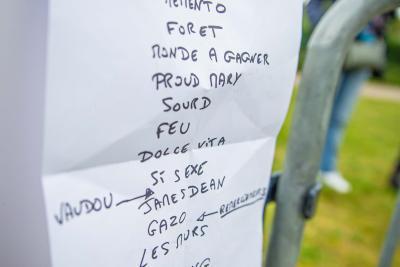 MEMENTO
FORET
MONDE A GAGNER
PROUD MARY
SOURD
FEU
DOLCE VITA
SI SEXE
VAUDOU
JAMES DEAN
GAZO
LES MURS